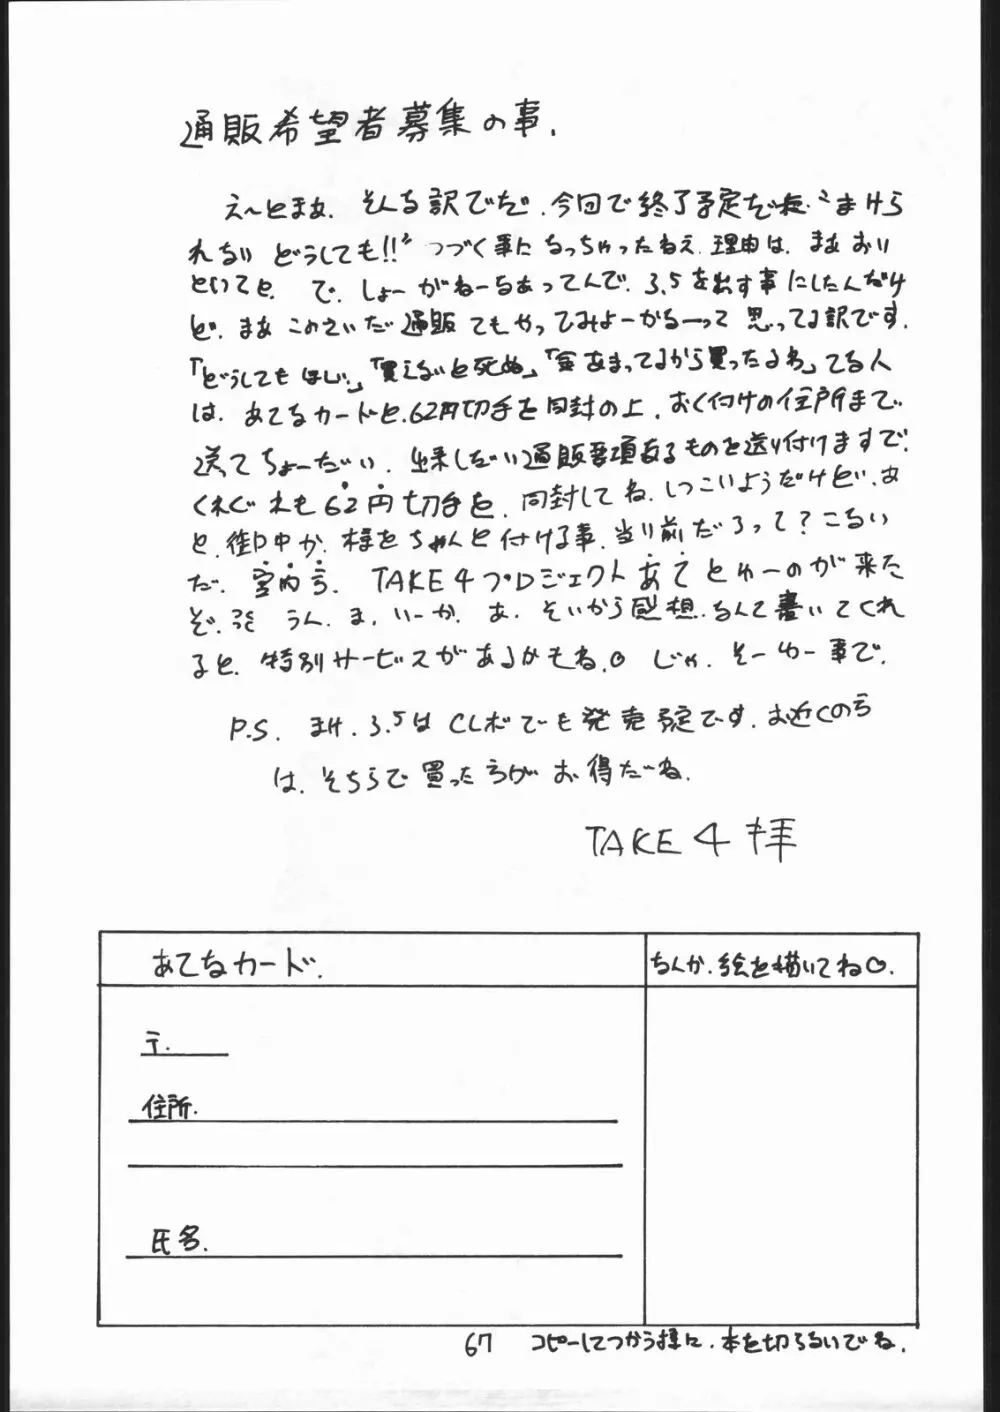 通販希望者募集の事.
え〜とまぁ. そんな訳でだ. 今回で終了予定だった "まけら
れない どうしても!!" つづく事になっちゃったねえ. 理由は. まあ おい
といてと. で. しょーがねーなあってんで. 3.5を出す事にしたんだけ
ど. まあ このさいだ 通販 でもやってみよーかなーって 思ってる訳です.
「どうしてもほしい」「買えないと死ぬ」「金あまってるから買ったるわ」てる人
は. あてなカードと. 62円切手を同封の上. おく付けの住所まで
送ってちょーだい. 出来しだい通販要項なるものを送り付けますで.
くれぐれも62円切手を. 同封してね. しつこいようだけどい. あ
と. 御中か. 様をちゃんと付ける事. 当り前だろって? こないだ
だ. 宮内 TAKE4プロジェクトあてとゆーのが来た
ぞ. うん. ま. いーか. あ. そいから感想. なんて書いてくれ
ると. 特別サービスがあるかもね.○ じゃ. そーゆー事で.
P.S. まけ. 3.5は CLボでも発売予定です. お近くのうち
は. そちらで買ったうがお得だね.
TAKE 4 拝
あてなカード.
なんか. 絵を描いてね○.
〒.
住所.
氏名.
67 コピーしてつかう様に. 本を切らないでね.